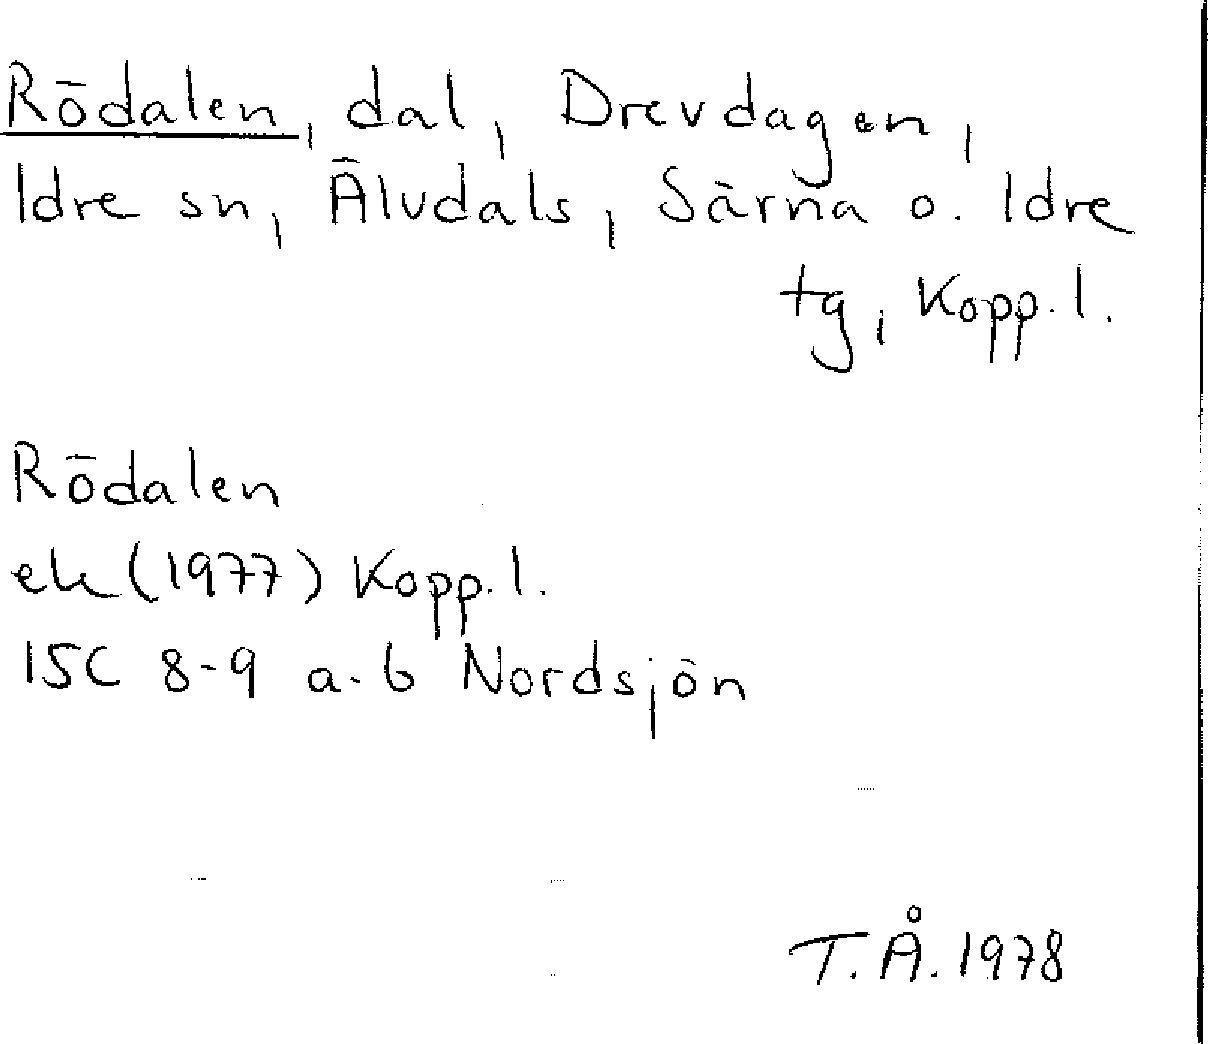 Rödalen, dal, Drevdagen,
Idre sn, Älvdals, Särna o. Idre
tg, Kopp. l.
Rödalen
ek (1977) Kopp. l.
15C 8-9 a-b Nordsjön
T.Å. 1978